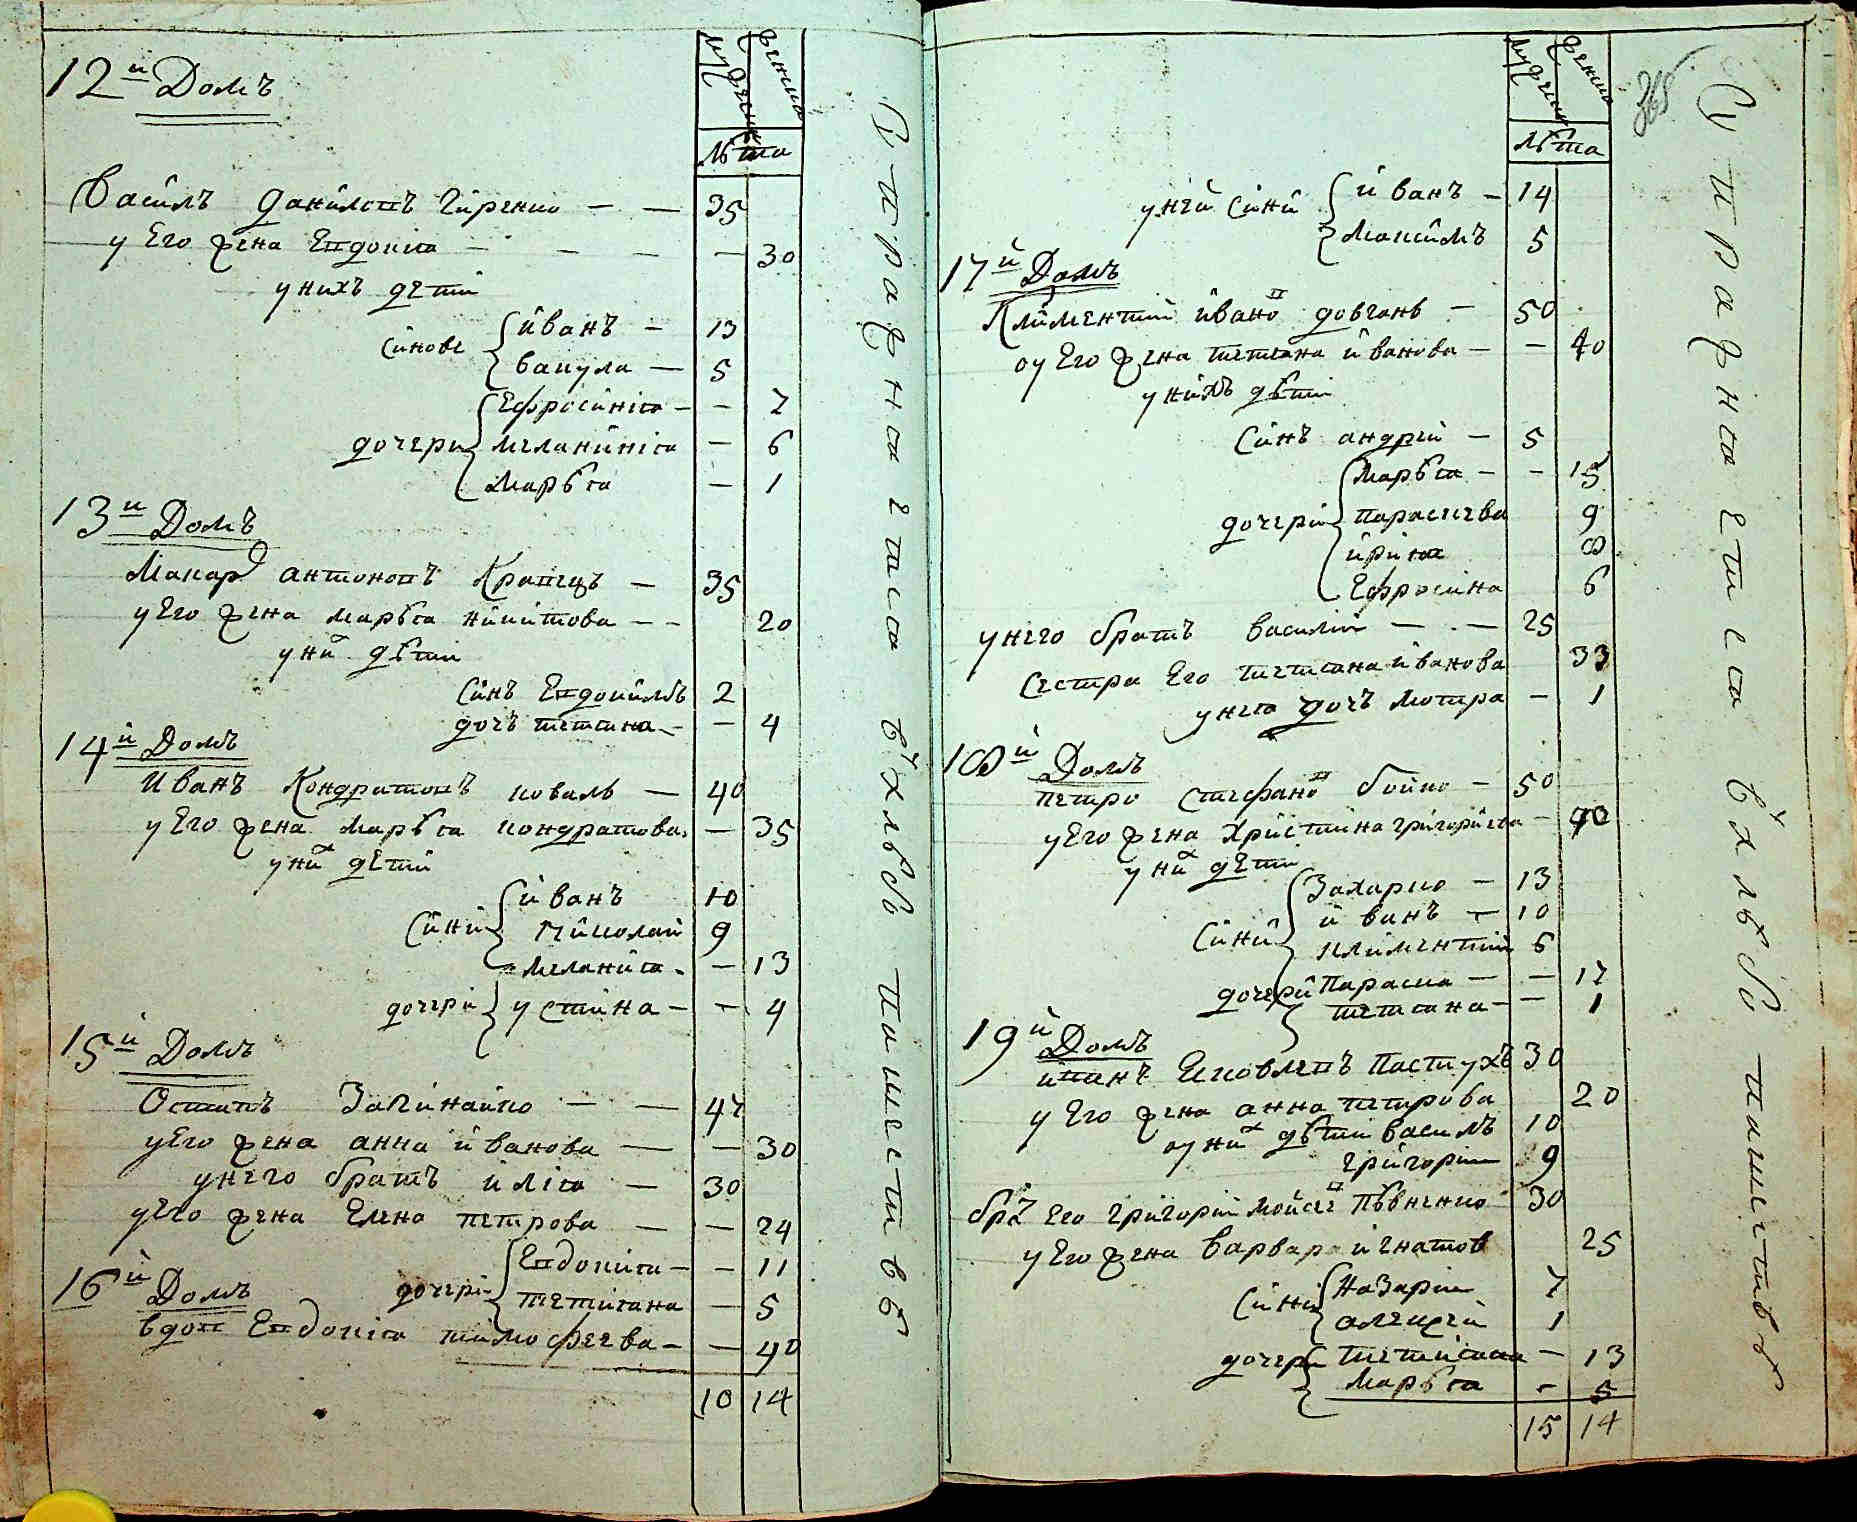 12й Домъ
мужеска
женска
лѣта
Василъ Данилопъ Гиренко — — 35
у Его жена Епдокиа — — — — 30
у нихъ дети
синове
иванъ — 13
вакула — 5
дочери
Ефросиніа — — 7
меланиніа — 6
Маръѣа — 1
13й Домъ
Макар антонопъ Крапецъ — 35
у Его жена маръѣа никитова — — 20
у них дѣти
Синъ Епдокимъ 2
дочъ тетиана — — 4
14й Домъ
Иванъ Кондратопъ коваль — 40
у Его жена маръѣа кондратова — 35
у них дети
Сини
иванъ 10
Николаи 9
меланиа — — 13
дочери
устина — — 4
15й Домъ
Остапъ Закинайко — — 47
у Его жена анна иванова — — 30
у него братъ иліа — 30
у Его жена Елена петрова — — 24
дочери
Епдокиа — — 11
тетиана — 5
16й Домъ
вдоп Епдокіа тимофеева — — 40
10 14
Супражна етаса вхлѣбо пашестпѣ
мужеска
женска
лѣта
365
у неи сини
иванъ — 14
Максимъ 5
17й Домъ
Климентии ивано довгань — 50
оу Его жена тетиана иванова — — 40
у нихъ дѣти
Синъ андреи — 5
дочери
Маръѣа — — 15
параскева 9
ирина 8
Ефросина 6
у него братъ василии — — 25
Сестра Его тетиана иванова 33
у неа дочъ мотра — 1
18й Домъ
петро стефано бойко — 50
у Его жена Христина григориева — 40
у них дети
Сини
Захарко — 13
иванъ — 10
климентии 6
дочери
Параска — — 17
тетиана — — 1
19й Домъ
ипанъ Ековлепъ Пастухъ 30
у Его жена анна петрова 20
оу них дѣти василъ 10
григории 9
бра Его григории мойсе Пѣвненко 30
у Его жена варвара игнатов 25
Сини
Назарии 7
алексеи 1
дочери
тетиана — 13
маръѣа — 5
15 14
Супражна етаса вхлѣбо пашестпѣ